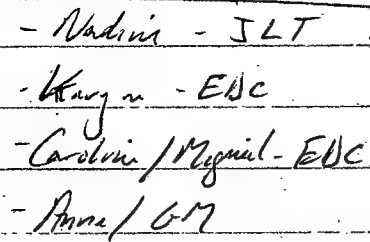 - Nadine - JLT
- Karyn - EDC
- Caroline / Miguel - EDC
- Anne / GM